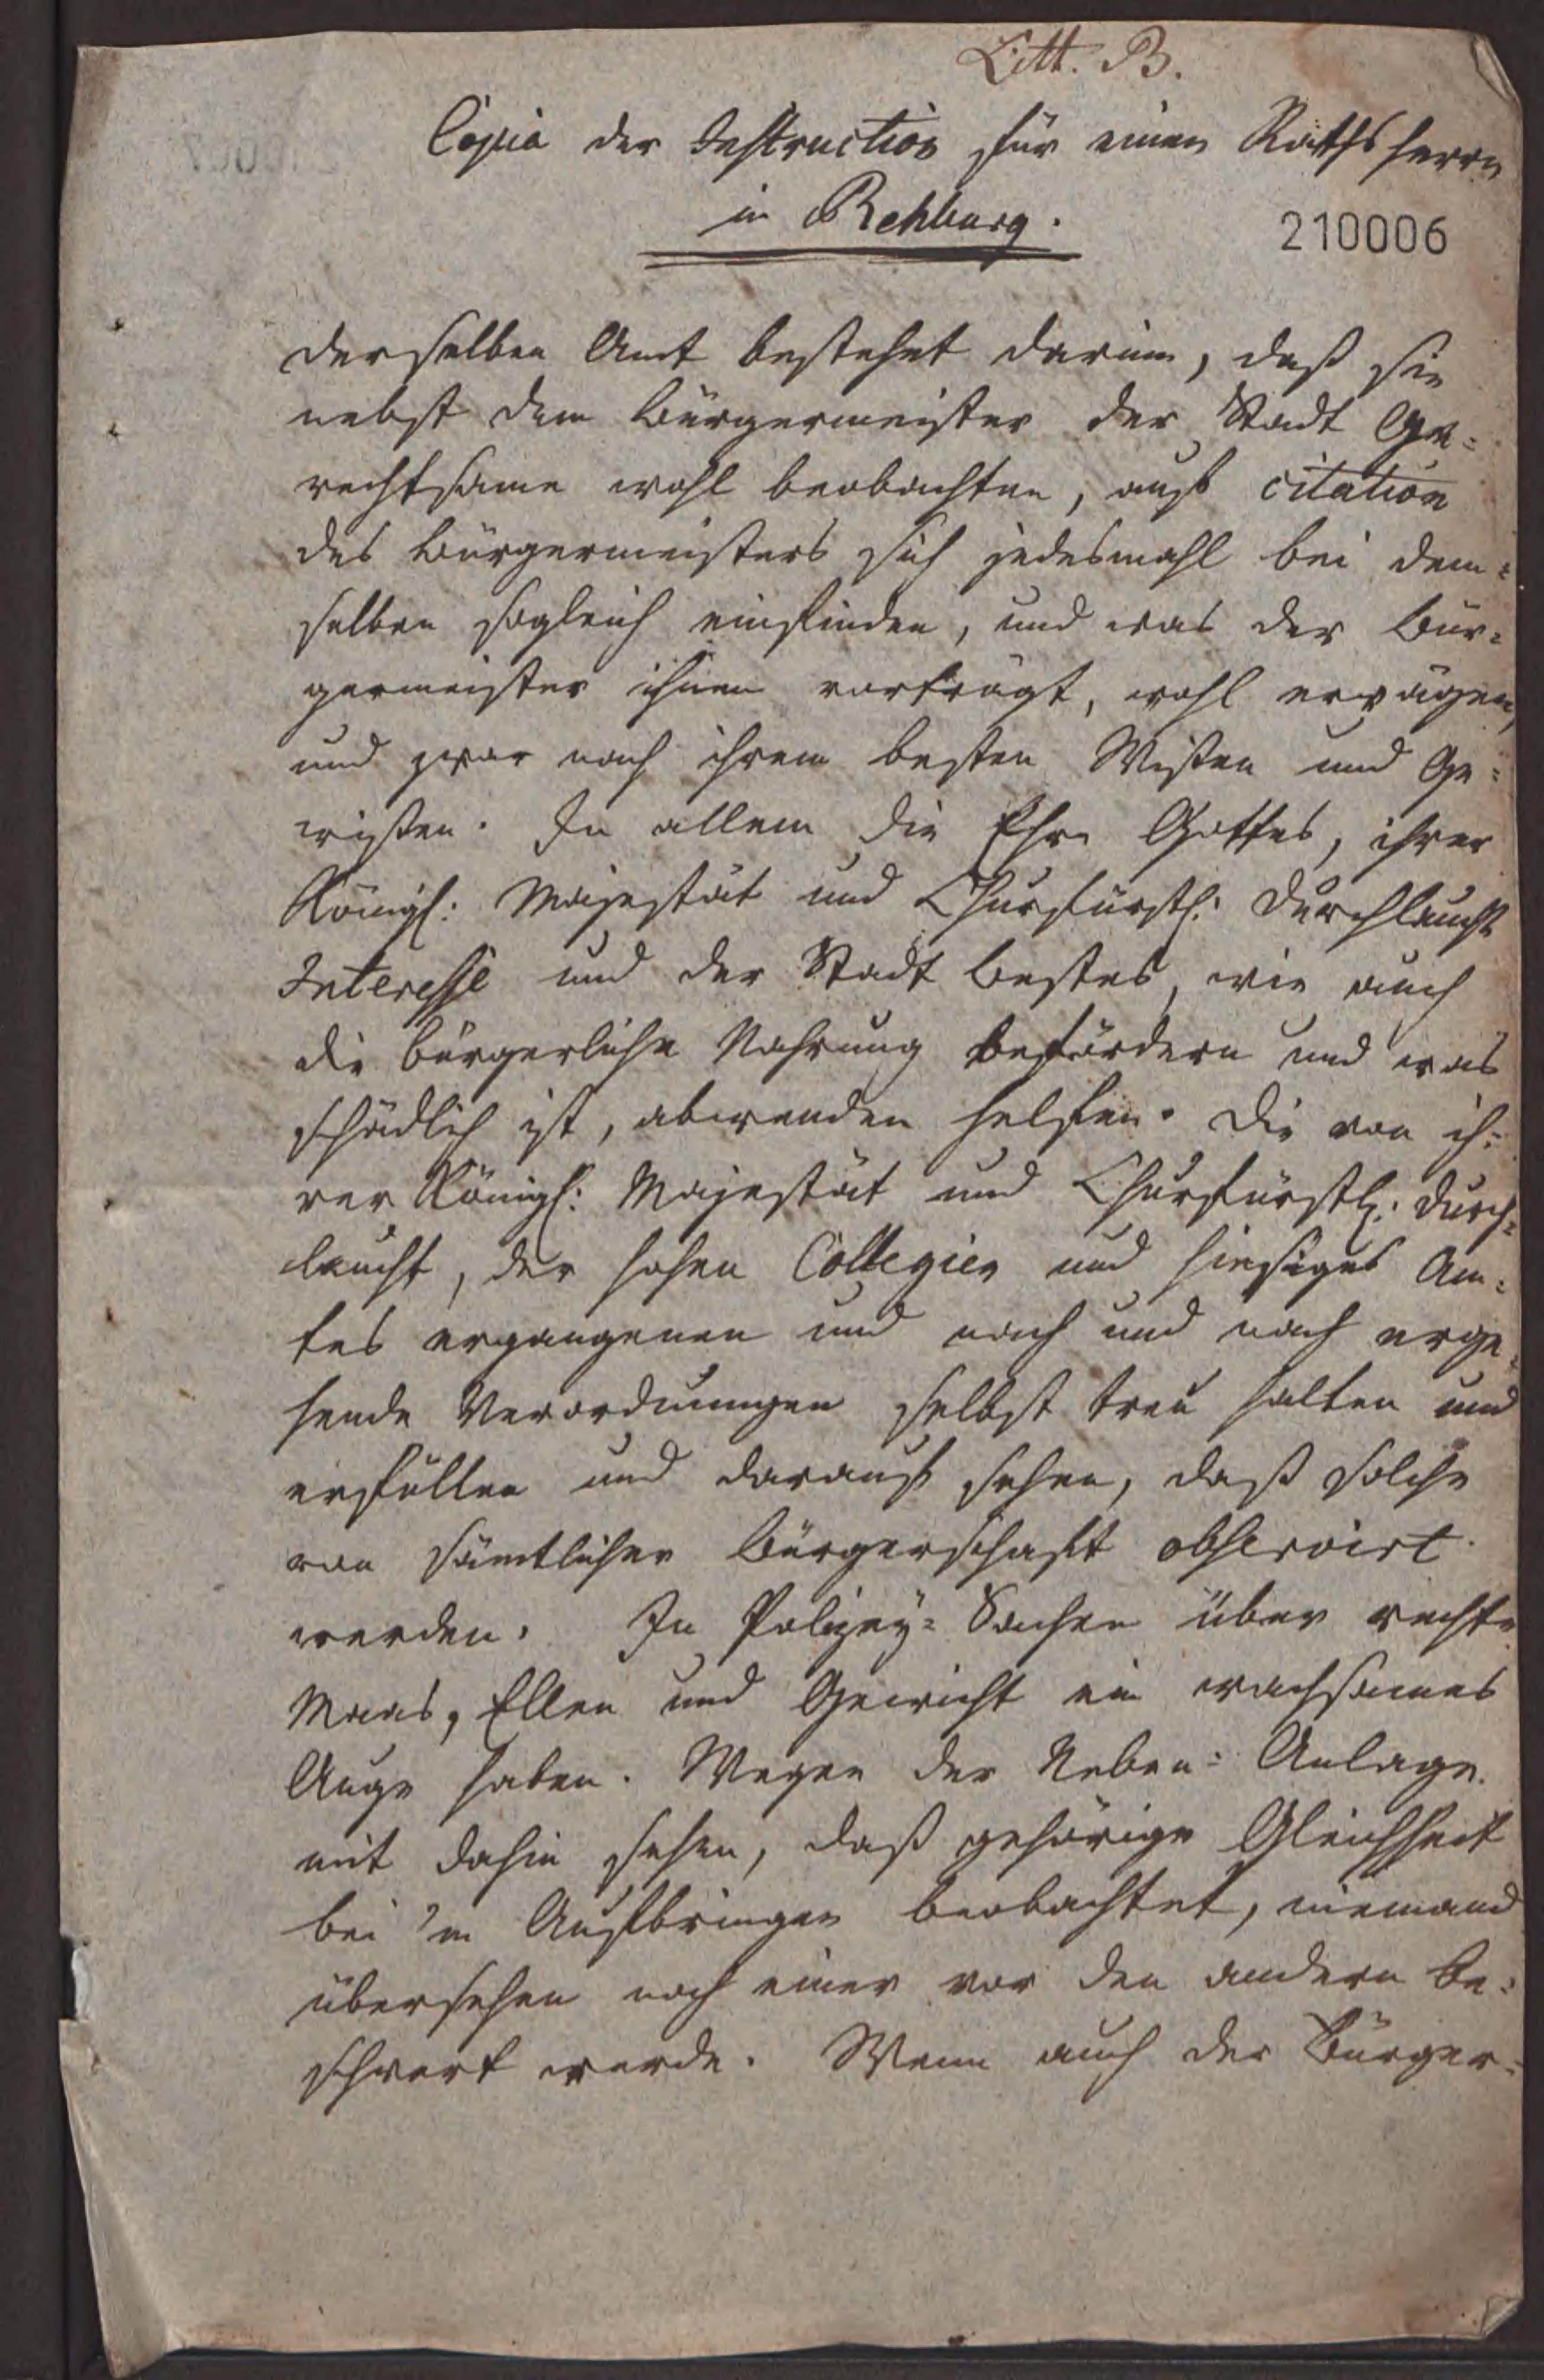 Litt. B.
Copia der Instruction für einen Rathsherrn
in Rehburg.
210006
Derselben Amt bestehet darinn, daß sie
nebst dem Bürgermeister der Stadt Ge=
rechtsame wohl beobachten, auf citation
des Bürgermeisters sich jedesmahl bei dem=
selben sogleich einfinden, und was der Bür=
germeister ihnen vorträgt, wohl erwägen,
und zwar nach ihrem besten Wißen und Ge=
wißen. In allem die Ehre Gottes, ihrer
Königl: Majestät und Churfürstl: Durchlaucht
Interesse und der Stadt Bestes, wie auch
die bürgerliche Nahrung befördern und was
schädlich ist, abwenden helfen. Die von ih=
rer Königl: Majestät und Churfürstl: Durch=
laucht, der hohen Collegien und hiesiges Am=
tes ergangenen und nach und nach erge=
hende Verordnungen selbst treu halten und
erfüllen und darauf sehen, daß solche
von sämtlicher Bürgerschaft observirt
werden. In Polizey=Sachen über rechte
Maas, Ellen und Gewicht ein wachsames
Auge haben. Wegen der Neben=Anlage
mit dahin sehen, daß gehörige Gleichheit
bei'm Aufbringen beobachtet, niemand
übersehen noch einer vor den andern be=
schwert werde. Wenn auch der Bürger=